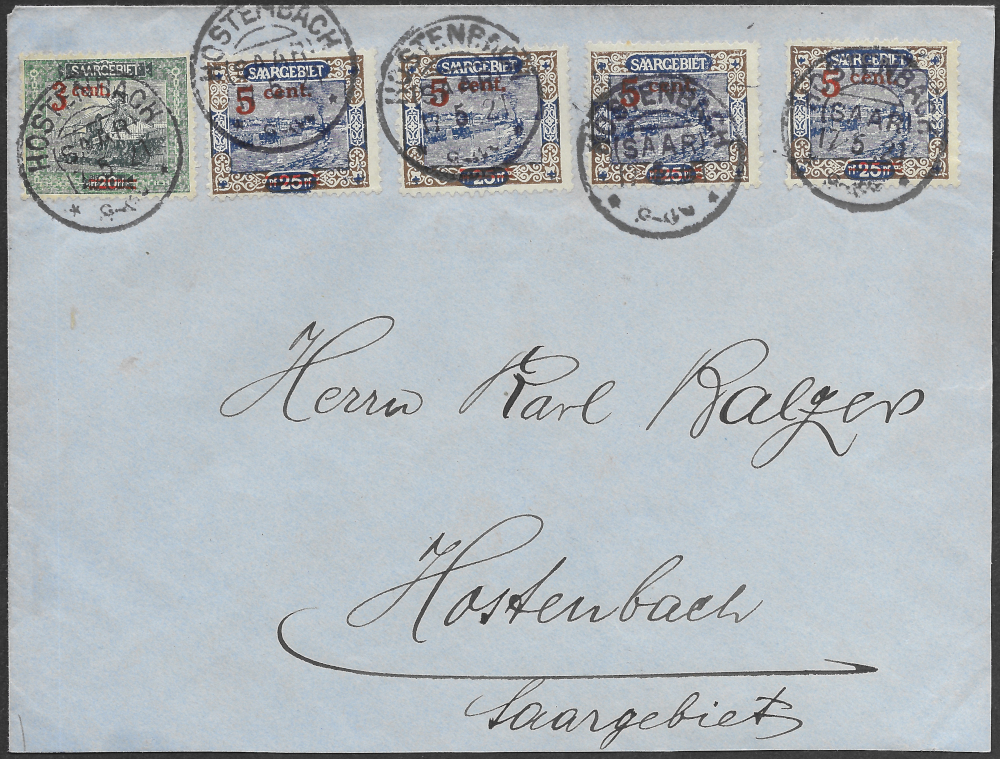 SAARGEBIET SAARGEBIET SAARGEBIET SAARGEBIET SAARGEBIET
3 cent. 5 cent. 5 cent. 5 cent. 5 cent.
20 25 25 25 25
HOSTENBACH (SAAR)
HOSTENBACH (SAAR)
HOSTENBACH 17 5 21
HOSTENBACH (SAAR)
HOSTENBACH (SAAR) 17 5
Herrn Karl Balzer
Hostenbach
Saargebiet